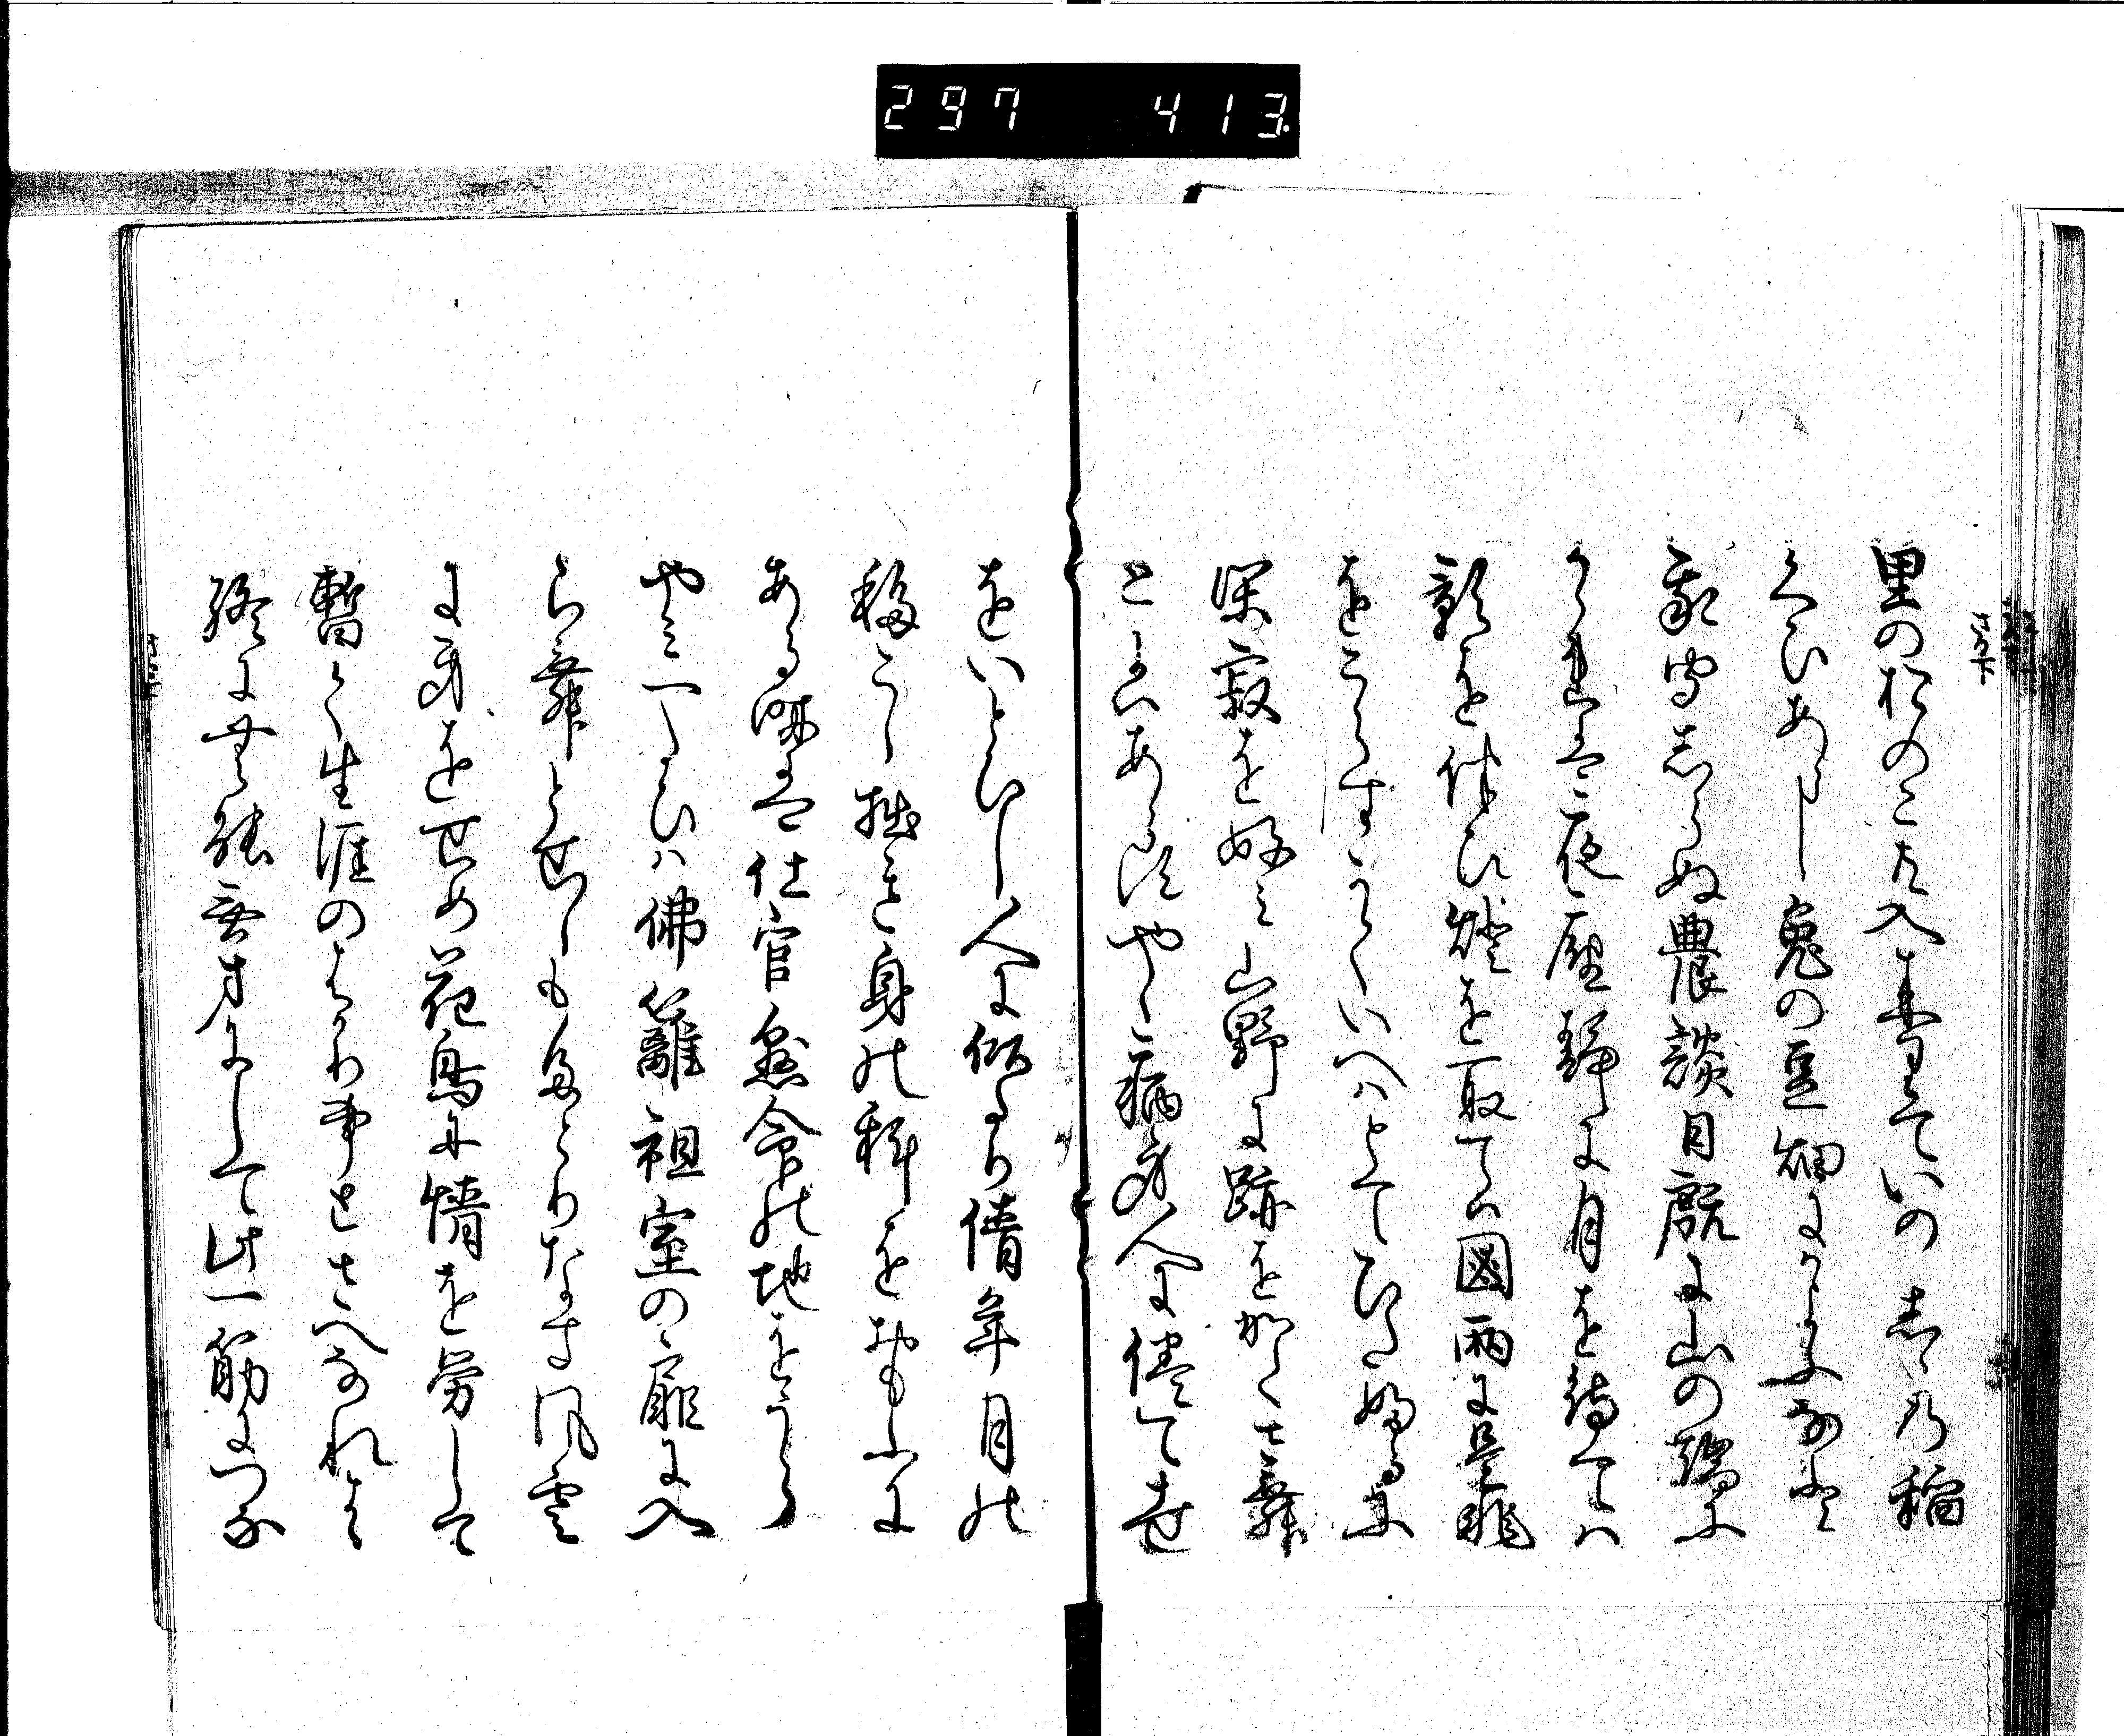 297 413
里のおのこ共入来りていのしゝの稲
くひあらし兎の豆畑にかよふなと
我聞しらぬ農談日既に山の端に
かゝれは夜座静に月を待ては
影を伴ひ燈を取ては罔両に是非
をこらすかくいへはとてひたふるに
閑寂を好み山野に跡をかくさむ
とにはあらすやゝ病身人に倦て世
をいとひし人に似たり倩年月の
移こし拙き身の科をおもふに
ある時は仕官懸命の地をうら
やみ一たひは佛籬祖室の扉に入
らむとせしもたとりなき風雲
に身をせめ花鳥に情を労して
暫く生涯のはかり事とさへなれは
終に無能無才にして此一筋につな